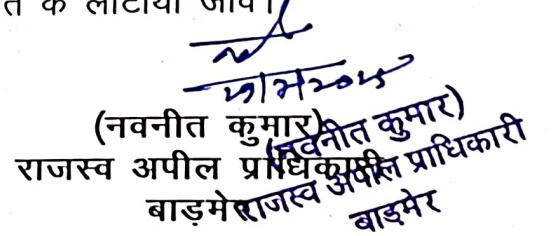 त के लौटाया जावे।
(नवनीत कुमार)
राजस्व अपील प्राधिकारी
बाड़मेर
(नवनीत कुमार)
राजस्व अपील प्राधिकारी
बाड़मेर